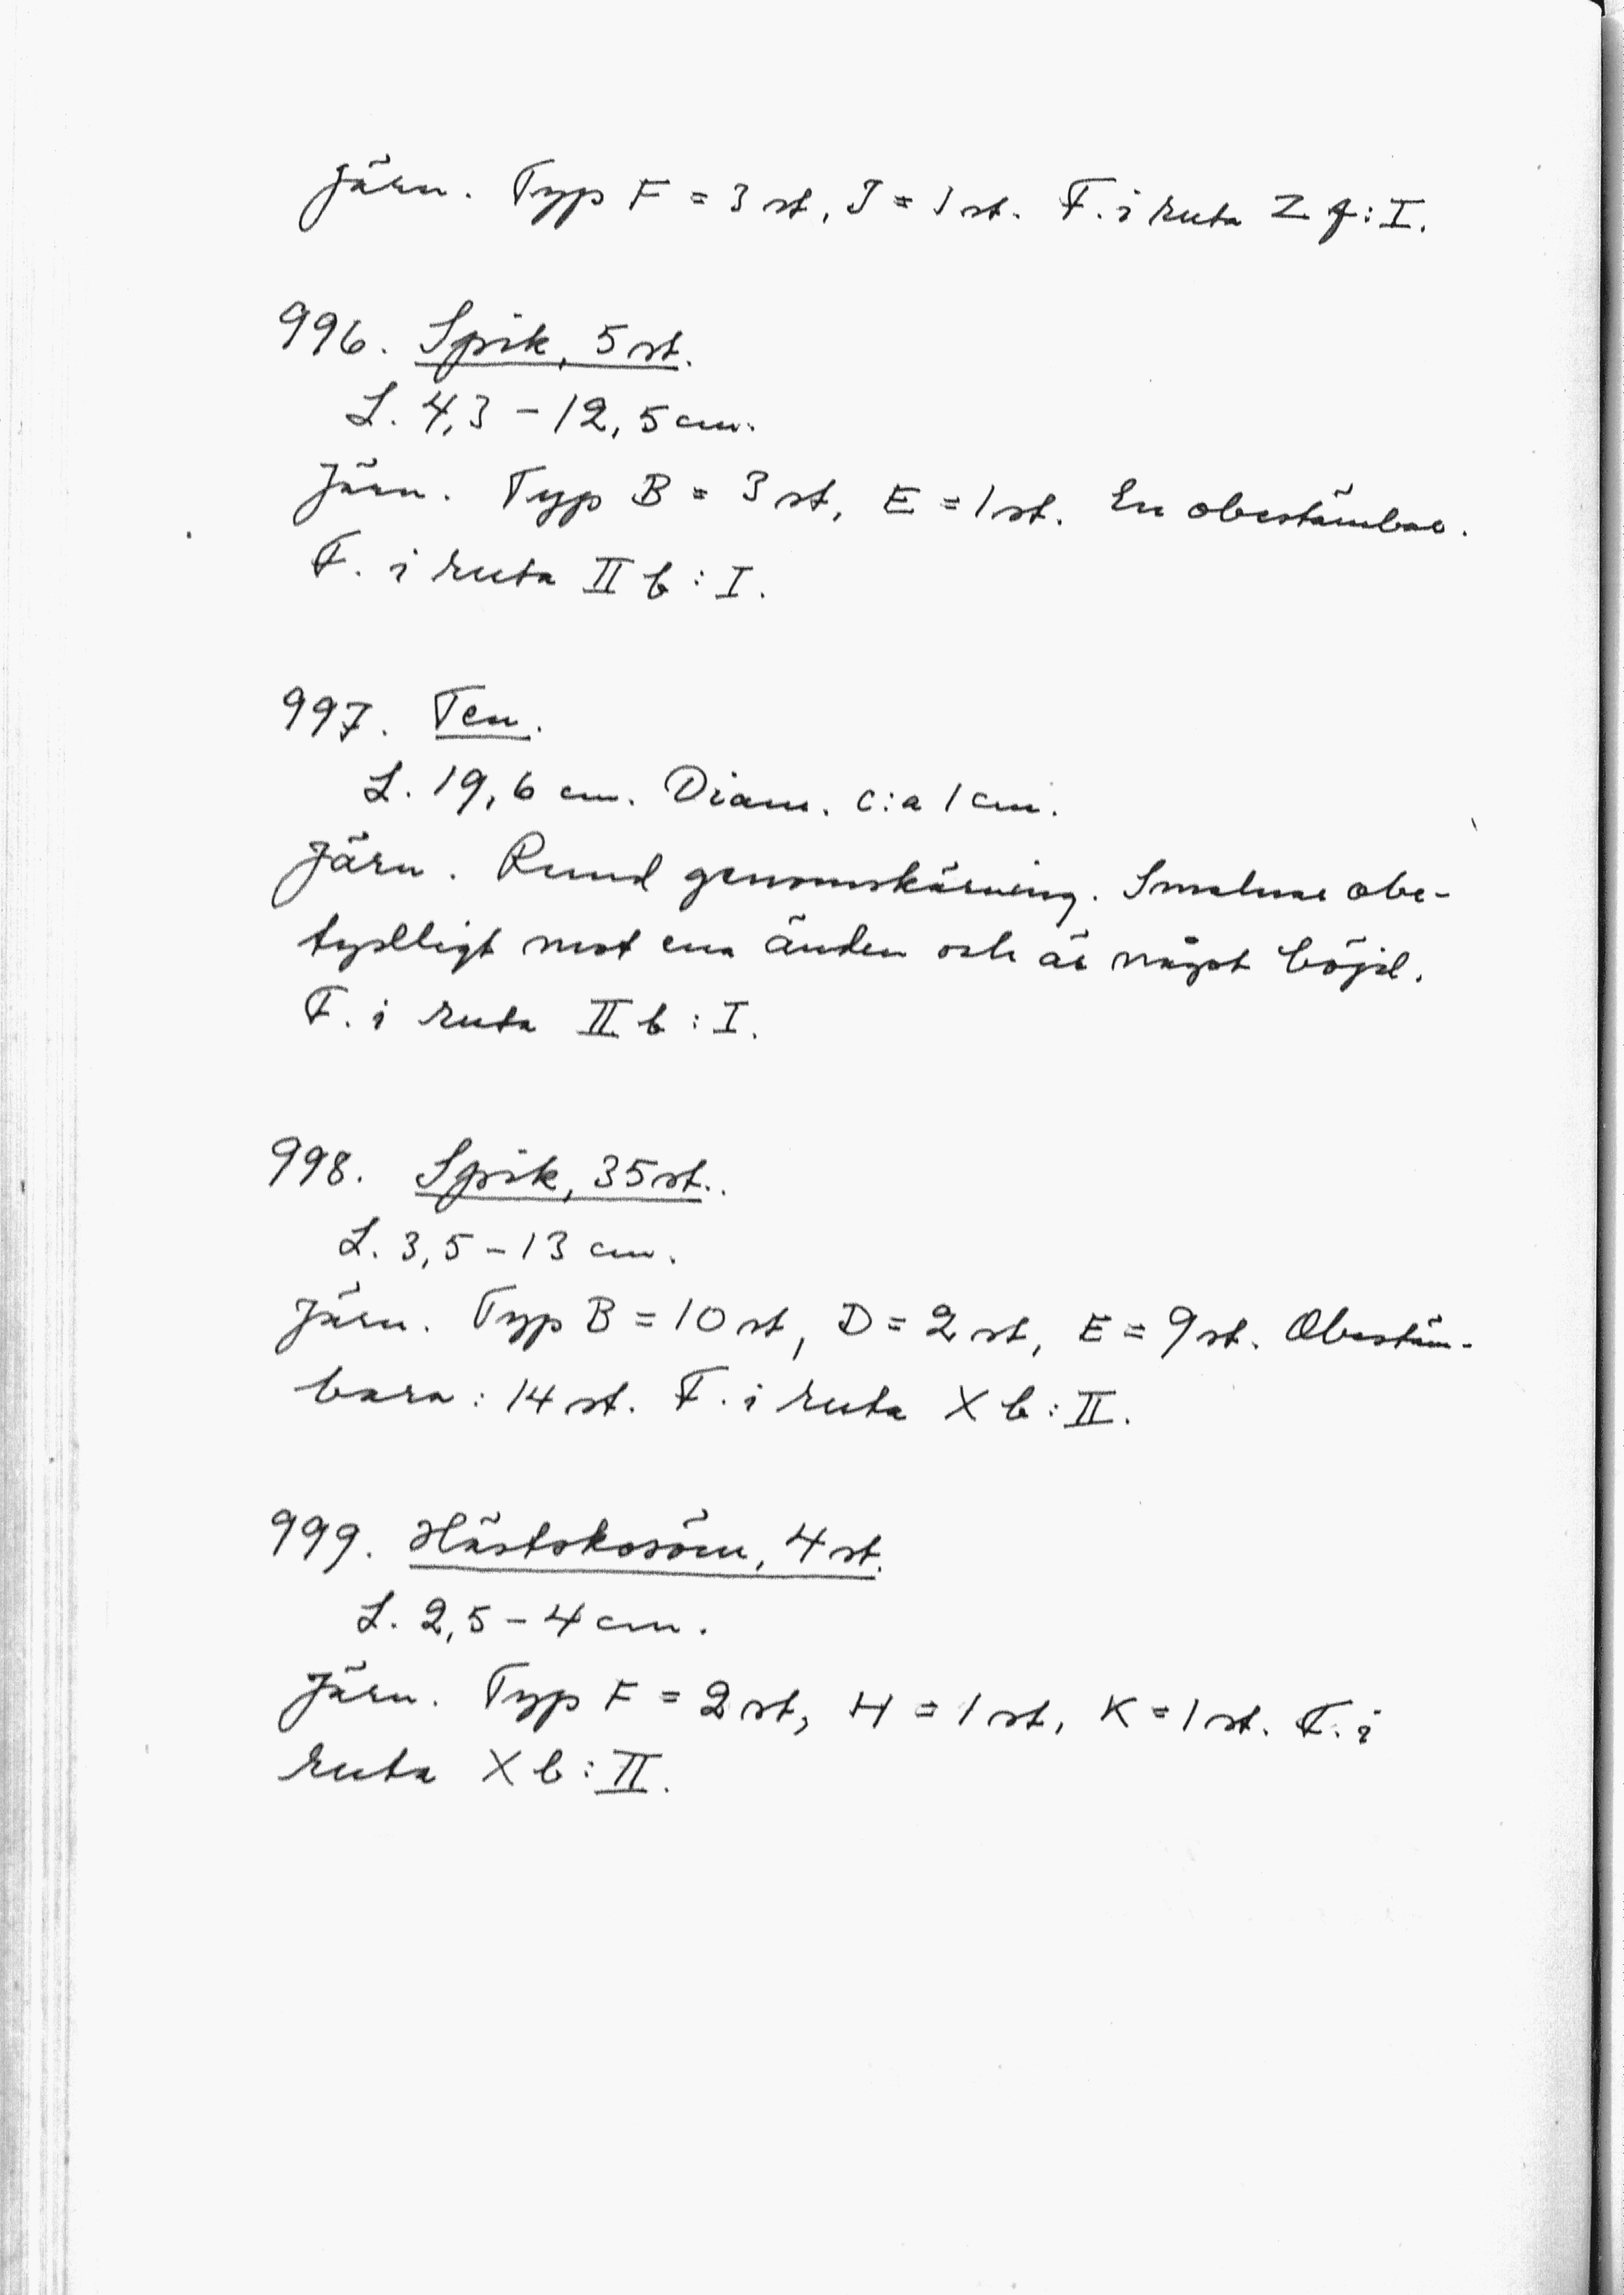 Järn. Typ F = 3 st, J = 1 st. F. i ruta Z f : I.
996. Spik, 5 st.
L. 4,3 - 12,5 cm.
Järn. Typ B = 3 st, E = 1 st. En obestämbar.
F. i ruta II b : I.
997. Ten.
L. 19,6 cm. Diam. c:a 1 cm.
Järn. Rund genomskärning. Smalnar obe-
tydligt mot ena änden och är något böjd.
F. i ruta II b : I.
998. Spik, 35 st.
L. 3,5 - 13 cm.
Järn. Typ B = 10 st, D = 2 st, E = 9 st. Obestäm-
bara : 14 st. F. i ruta X b : II.
999. Hästskosöm, 4 st.
L. 2,5 - 4 cm.
Järn. Typ F = 2 st, H = 1 st, K = 1 st. F. i
ruta X b : II.